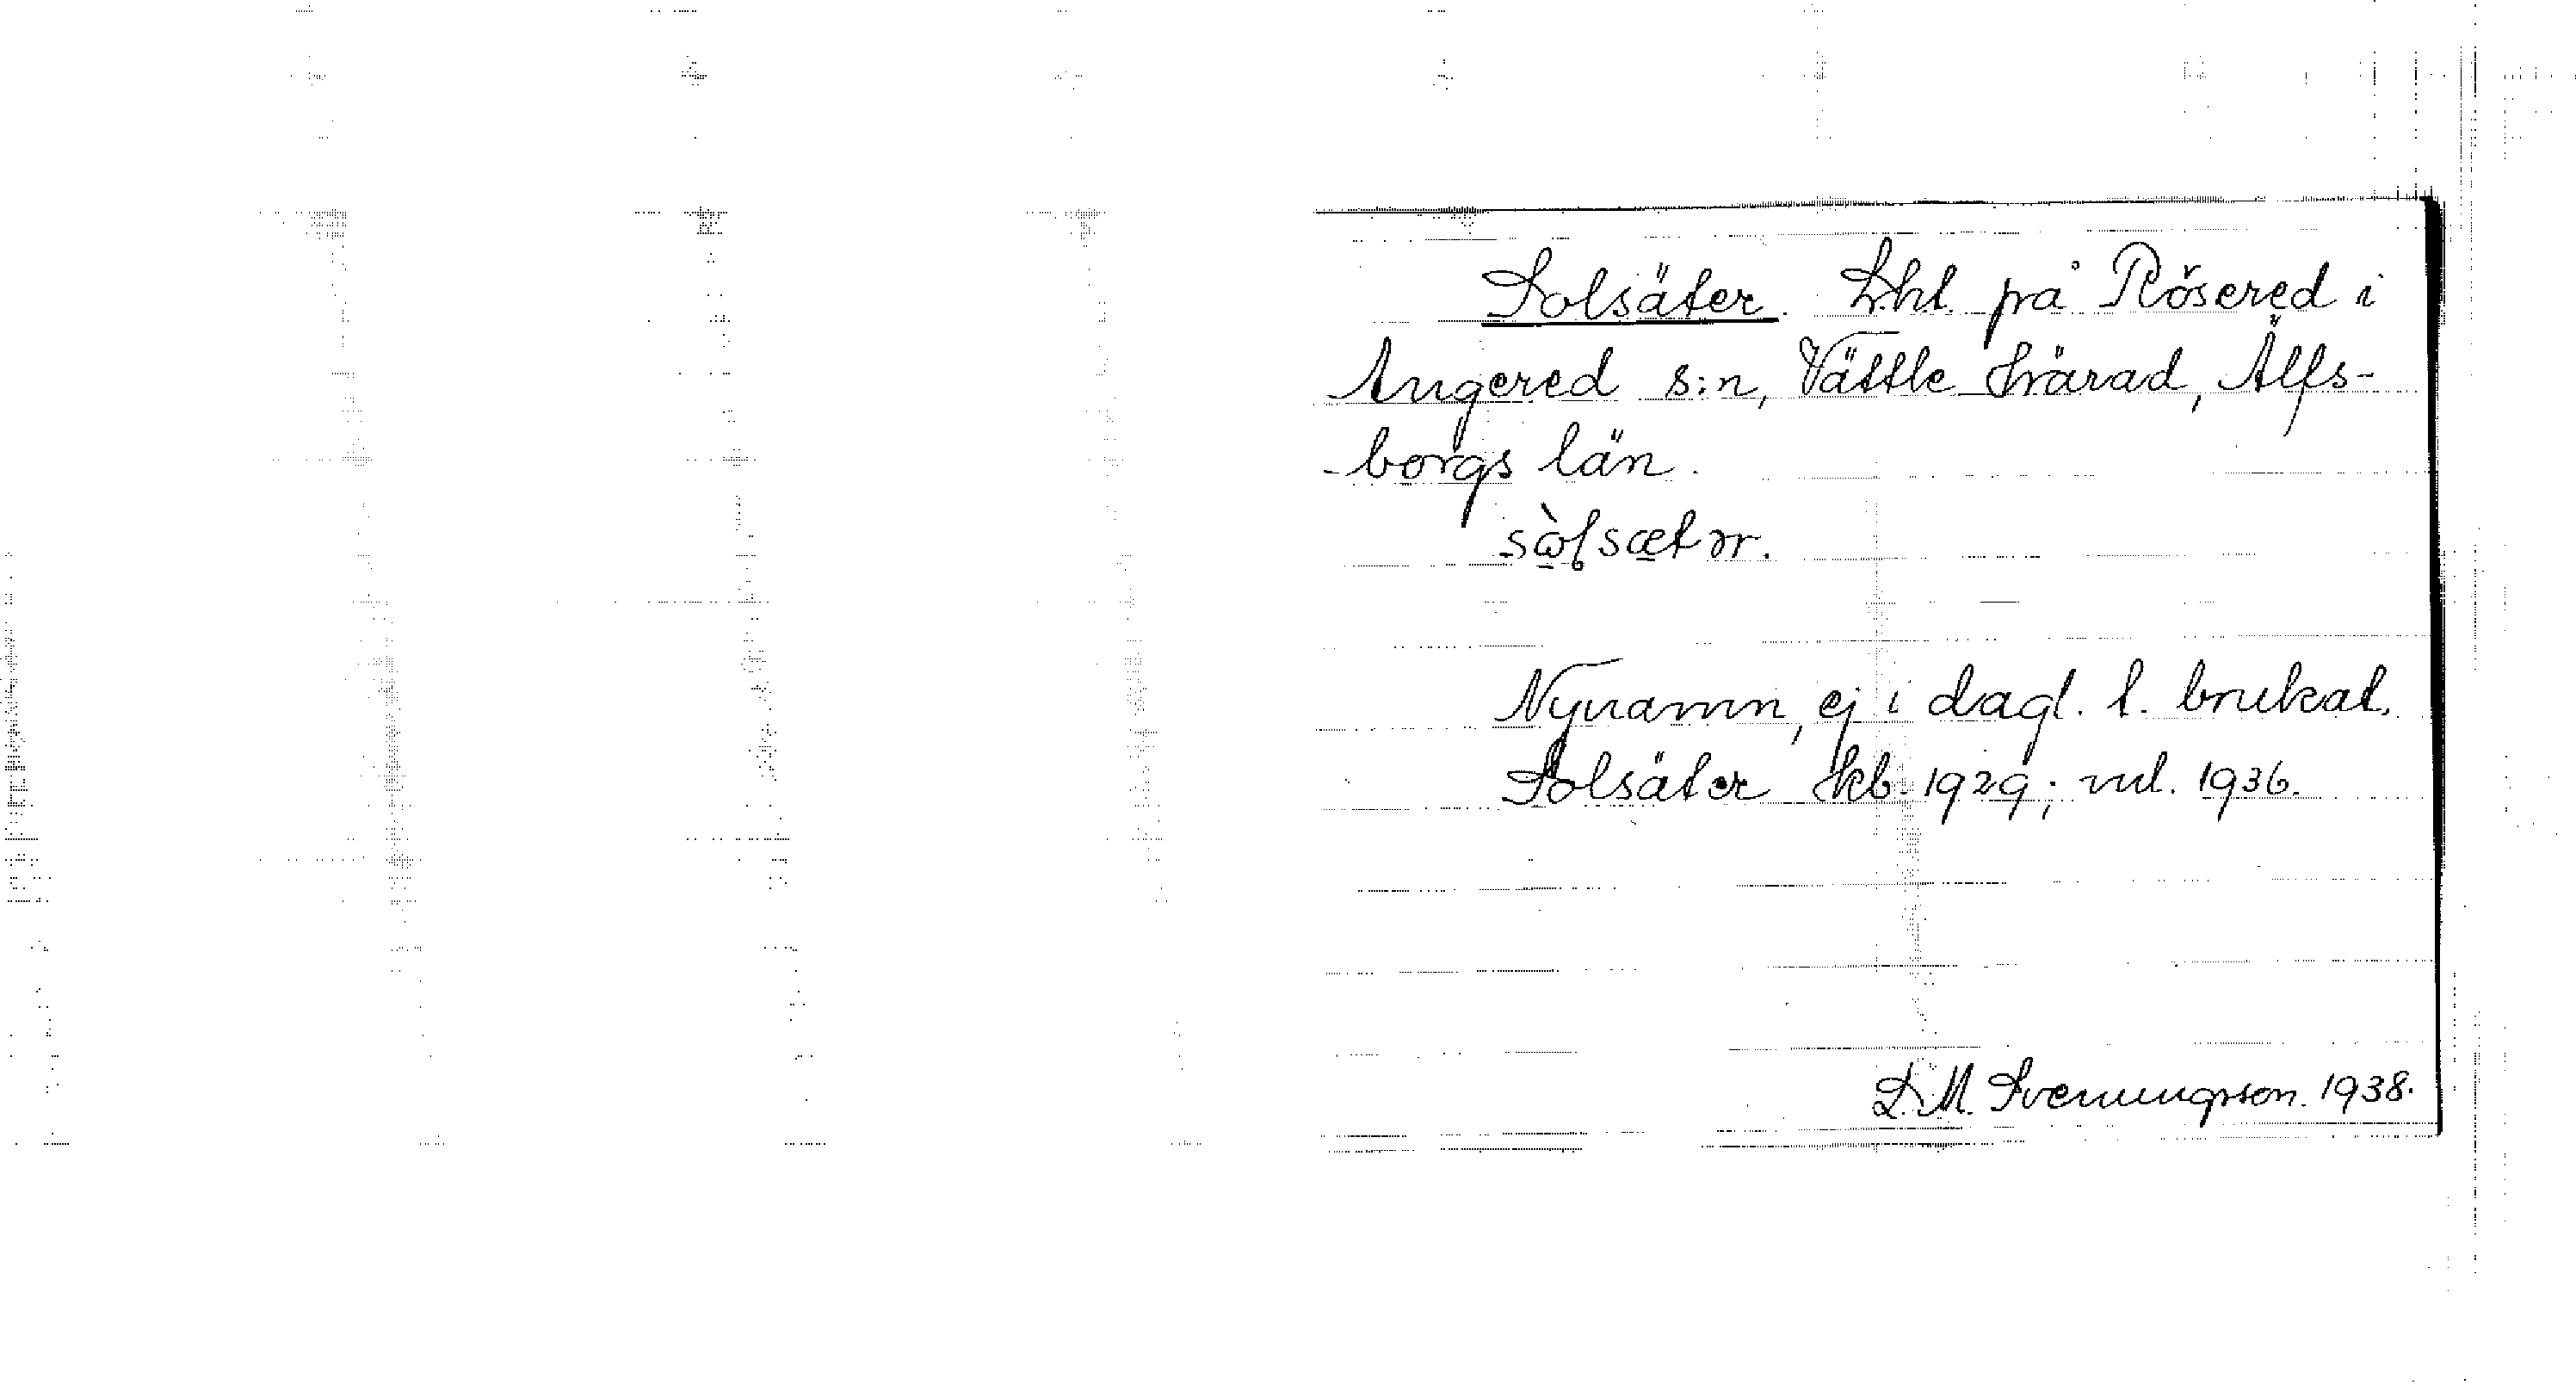 Solsäter. Lht. på Rösered i
Angered s:n, Vättle härad, Älfs-
-borgs län.
sò̱lsætər.
Nynamn, ej i dagl. t. brukat.
Solsäter kb. 1929; vul. 1936.
S. M. Svenungsson. 1938.